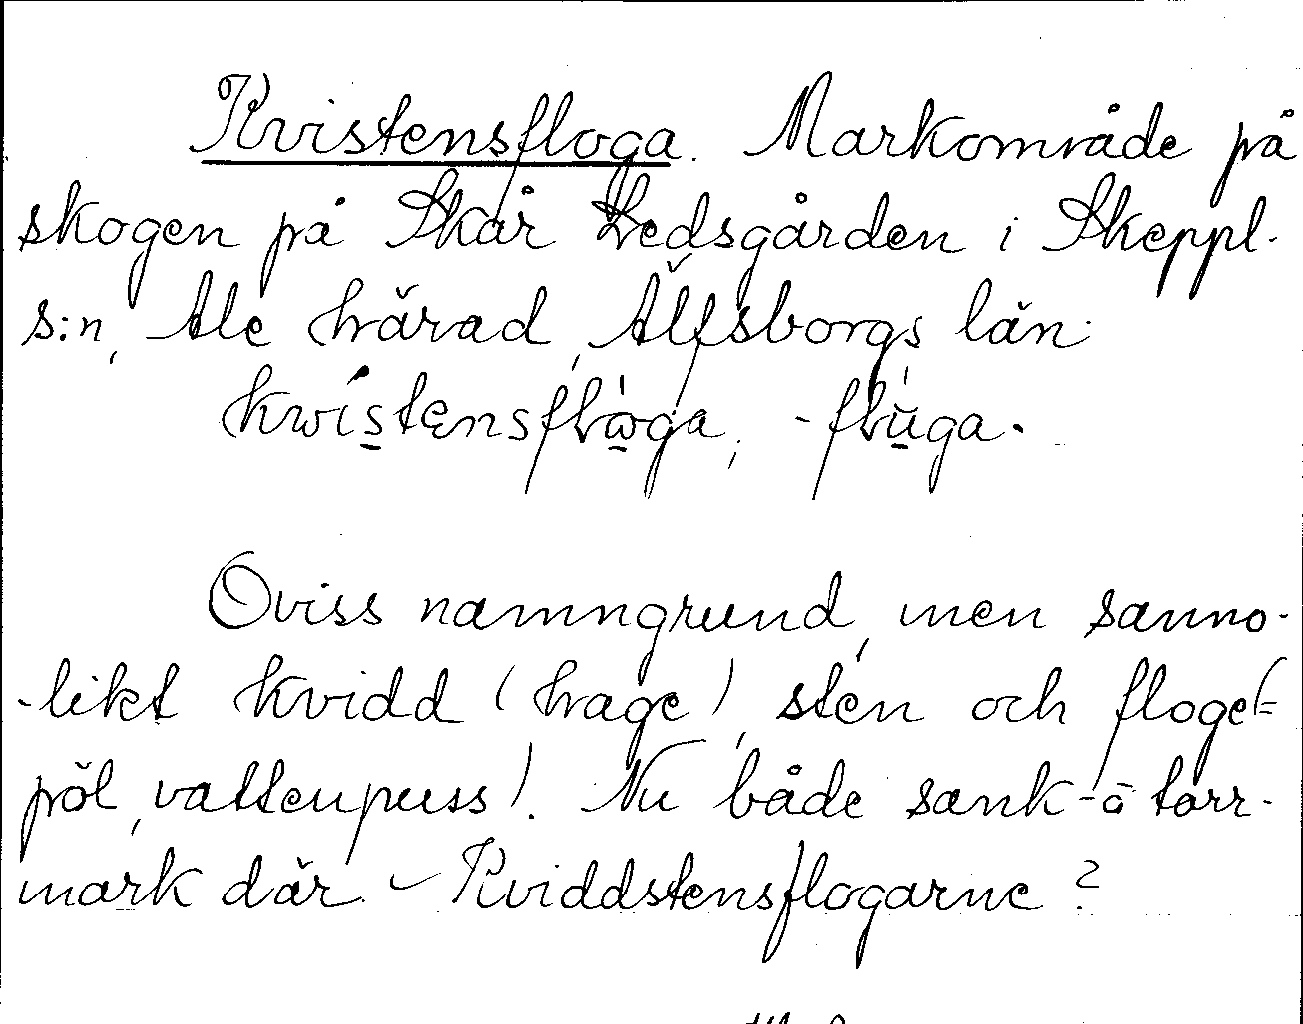 Kvistensfloga. Markområde på
skogen på Skår Ledsgården i Skeppl-
s:n, Ale härad, Älfsborgs län.
kwistensflωga, -flŭga.
Oviss namngrund, men sanno-
-likt kvidd (hage), sten och floge(=
pöl, vattenpuss). Nu både sank- o torr-
mark där. - Kviddstensflogarne?